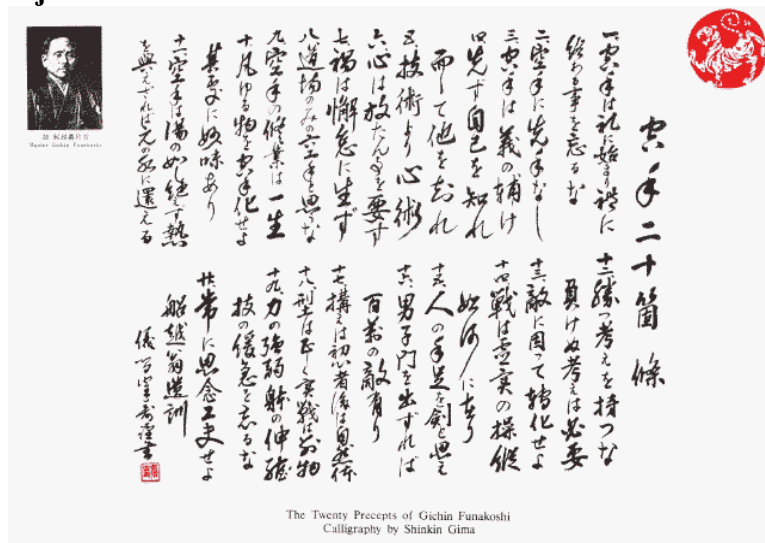 空手二十箇條
一、空手は礼に始まり禮に
終わる事を忘るな
二、空手に先手なし
三、空手は義の補け
四、先ず自己を知れ
而して他を知れ
五、技術より心術
六、心は放たん事を要す
七、禍は懈怠に生ず
八、道場のみの空手と思うな
九、空手の修業は一生
十、凡ゆる物を空手化せよ
其処に妙味あり
十一、空手は湯の如し絶えず熱
を與えざれば元の水に還える
十二、勝つ考えを持つな
負けぬ考えは必要
十三、敵に因って轉化せよ
十四、戦は虚実の操縦
如何に在り
十五、人の手足を剣と思え
十六、男子門を出ずれば
百萬の敵有り
十七、構えは初心者後は自然体
十八、型は正しく実戦は別物
十九、力の強弱躰の伸縮
技の緩急を忘るな
廿、常に思念工夫せよ
船越翁遺訓
儀間真謹書
Master Gichin Funakoshi
The Twenty Precepts of Gichin Funakoshi
Calligraphy by Shinkin Gima